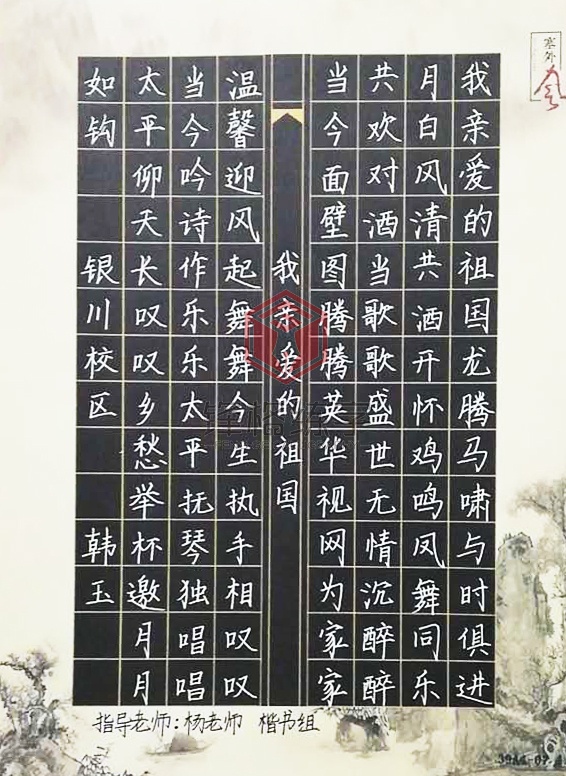 我亲爱的祖国龙腾马啸与时俱进
月白风清共洒开怀鸡鸣凤舞同乐
共欢对酒当歌歌盛世无情沉醉醉
当今面壁图腾腾英华视网为家家
我亲爱的祖国
温馨迎风起舞舞今生执手相叹叹
当今吟诗作乐乐太平抚琴独唱唱
太平仰天长叹叹乡愁举杯邀月月
如钩 银川校区 韩玉
指导老师:杨老师 楷书组
塞外
风
练字
39A4-07